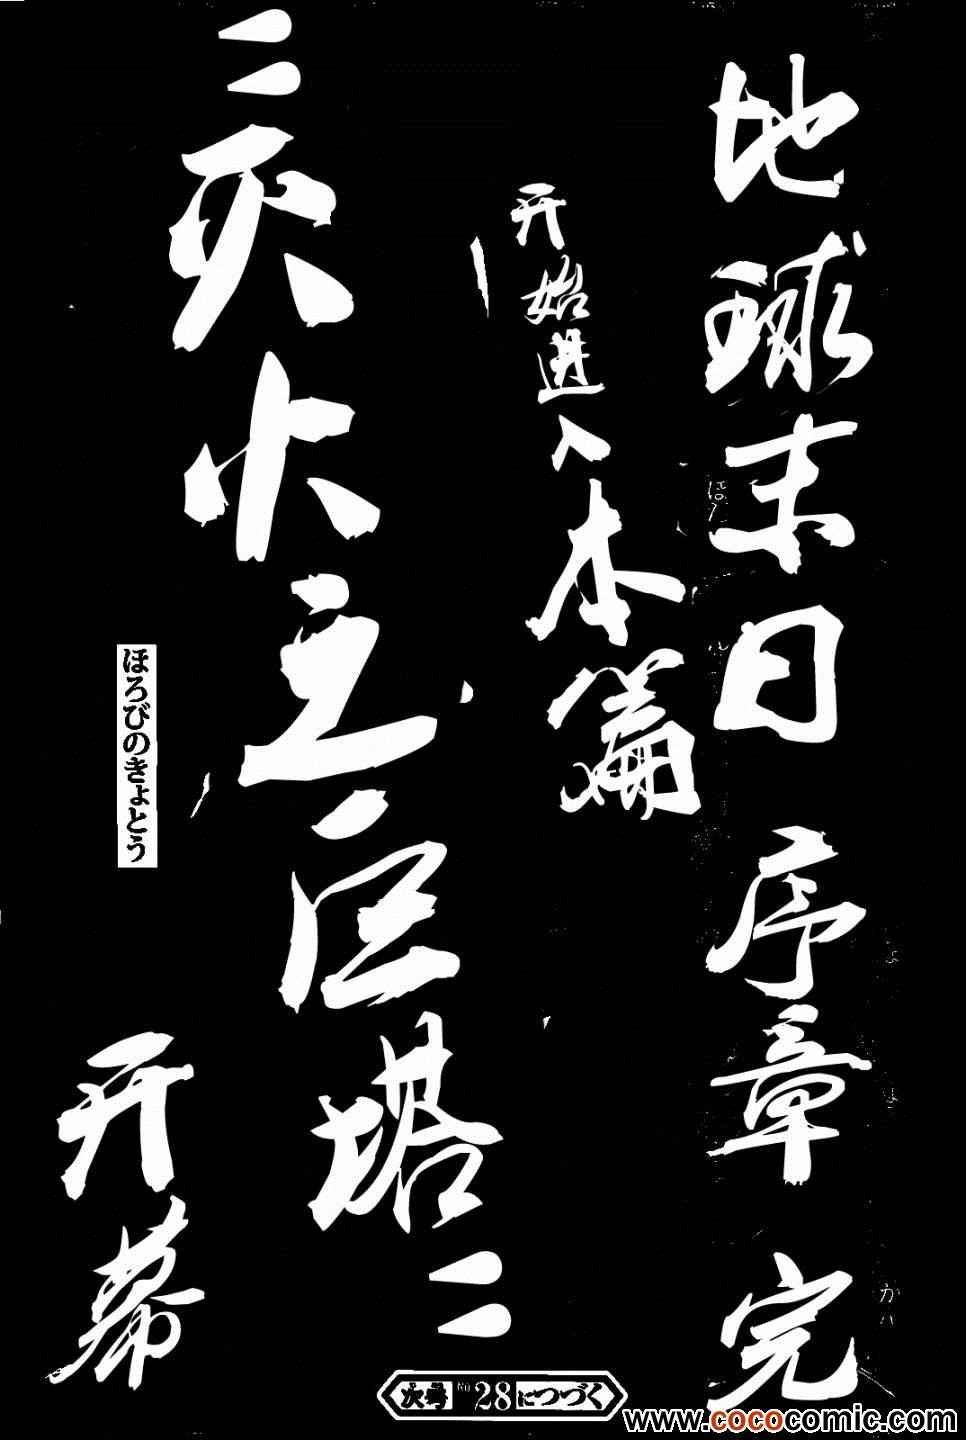 地球末日 序章 完
开始进入本篇
"灭火之巨塔"
ほろびのきょとう
开幕
次号No.28につづく
www.cococomic.com